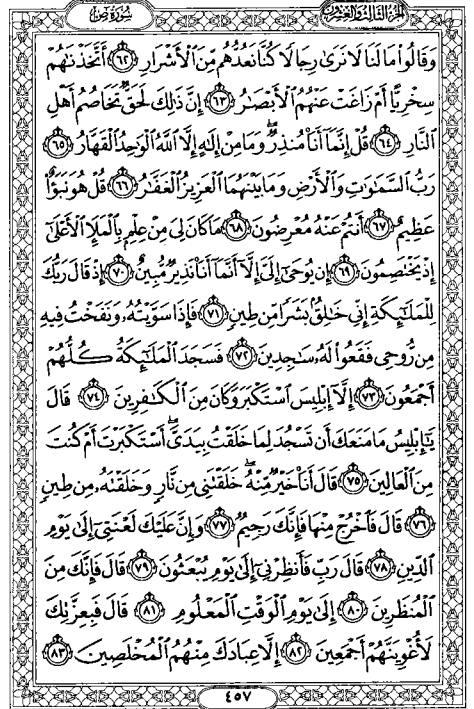 الجزء الثالث والعشرون سورة ص
وَقَالُوا۟ مَا لَنَا لَا نَرَىٰ رِجَالًا كُنَّا نَعُدُّهُم مِّنَ ٱلْأَشْرَارِ ﴿٦٢﴾ أَتَّخَذْنَٰهُمْ
سِخْرِيًّا أَمْ زَاغَتْ عَنْهُمُ ٱلْأَبْصَٰرُ ﴿٦٣﴾ إِنَّ ذَٰلِكَ لَحَقٌّ تَخَاصُمُ أَهْلِ
ٱلنَّارِ ﴿٦٤﴾ قُلْ إِنَّمَآ أَنَا۠ مُنذِرٌ ۖ وَمَا مِنْ إِلَٰهٍ إِلَّا ٱللَّهُ ٱلْوَٰحِدُ ٱلْقَهَّارُ ﴿٦٥﴾
رَبُّ ٱلسَّمَٰوَٰتِ وَٱلْأَرْضِ وَمَا بَيْنَهُمَا ٱلْعَزِيزُ ٱلْغَفَّٰرُ ﴿٦٦﴾ قُلْ هُوَ نَبَؤٌا۟
عَظِيمٌ ﴿٦٧﴾ أَنتُمْ عَنْهُ مُعْرِضُونَ ﴿٦٨﴾ مَا كَانَ لِىَ مِنْ عِلْمٍۭ بِٱلْمَلَإِ ٱلْأَعْلَىٰٓ
إِذْ يَخْتَصِمُونَ ﴿٦٩﴾ إِن يُوحَىٰٓ إِلَىَّ إِلَّآ أَنَّمَآ أَنَا۠ نَذِيرٌ مُّبِينٌ ﴿٧٠﴾ إِذْ قَالَ رَبُّكَ
لِلْمَلَٰٓئِكَةِ إِنِّى خَٰلِقٌۢ بَشَرًا مِّن طِينٍ ﴿٧١﴾ فَإِذَا سَوَّيْتُهُۥ وَنَفَخْتُ فِيهِ
مِن رُّوحِى فَقَعُوا۟ لَهُۥ سَٰجِدِينَ ﴿٧٢﴾ فَسَجَدَ ٱلْمَلَٰٓئِكَةُ كُلُّهُمْ
أَجْمَعُونَ ﴿٧٣﴾ إِلَّآ إِبْلِيسَ ٱسْتَكْبَرَ وَكَانَ مِنَ ٱلْكَٰفِرِينَ ﴿٧٤﴾ قَالَ
يَٰٓإِبْلِيسُ مَا مَنَعَكَ أَن تَسْجُدَ لِمَا خَلَقْتُ بِيَدَىَّ ۖ أَسْتَكْبَرْتَ أَمْ كُنتَ
مِنَ ٱلْعَالِينَ ﴿٧٥﴾ قَالَ أَنَا۠ خَيْرٌ مِّنْهُ ۖ خَلَقْتَنِى مِن نَّارٍ وَخَلَقْتَهُۥ مِن طِينٍ
﴿٧٦﴾ قَالَ فَٱخْرُجْ مِنْهَا فَإِنَّكَ رَجِيمٌ ﴿٧٧﴾ وَإِنَّ عَلَيْكَ لَعْنَتِىٓ إِلَىٰ يَوْمِ
ٱلدِّينِ ﴿٧٨﴾ قَالَ رَبِّ فَأَنظِرْنِىٓ إِلَىٰ يَوْمِ يُبْعَثُونَ ﴿٧٩﴾ قَالَ فَإِنَّكَ مِنَ
ٱلْمُنظَرِينَ ﴿٨٠﴾ إِلَىٰ يَوْمِ ٱلْوَقْتِ ٱلْمَعْلُومِ ﴿٨١﴾ قَالَ فَبِعِزَّتِكَ
لَأُغْوِيَنَّهُمْ أَجْمَعِينَ ﴿٨٢﴾ إِلَّا عِبَادَكَ مِنْهُمُ ٱلْمُخْلَصِينَ ﴿٨٣﴾
٤٥٧